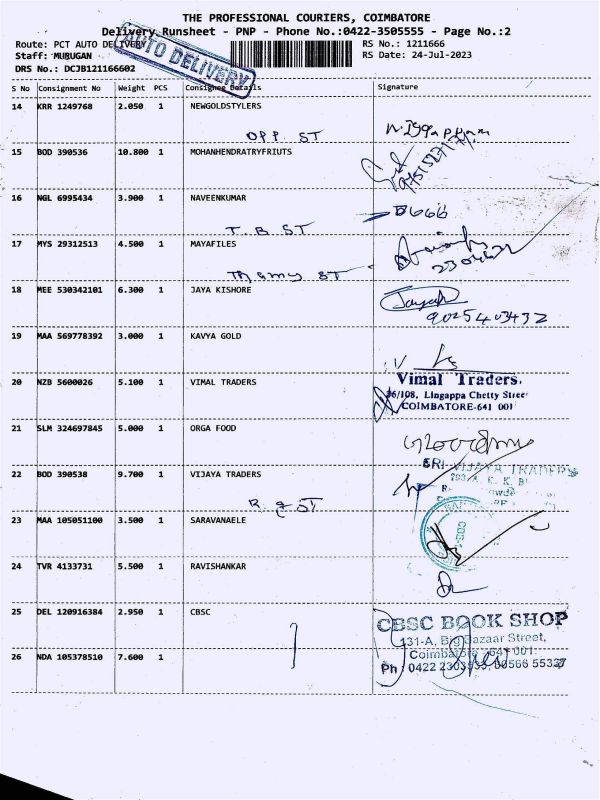 THE PROFESSIONAL COURIERS, COIMBATORE
Delivery Runsheet - PNP - Phone No.:0422-3505555 - Page No.:2
Route: PCT AUTO DELIVERY
RS No.: 1211666
Staff: MURUGAN
RS Date: 24-Jul-2023
DRS No.: DCJB121166602
AUTO DELIVERY
S No Consignment No Weight PCS Consignee Details Signature
14 KRR 1249768 2.050 1 NEWGOLDSTYLERS
OPP. ST
15 BOD 390536 10.800 1 MOHANHENDRATRYFRIUTS
16 NGL 6995434 3.900 1 NAVEENKUMAR
T. B ST
17 MYS 29312513 4.500 1 MAYAFILES
ST
18 MEE 530342101 6.300 1 JAYA KISHORE
9025403432
19 MAA 569778392 3.000 1 KAVYA GOLD
20 NZB 5600026 5.100 1 VIMAL TRADERS
Vimal Traders,
36/108, Lingappa Chetty Street
COIMBATORE-641 001
21 SLM 324697845 5.000 1 ORGA FOOD
22 BOD 390538 9.700 1 VIJAYA TRADERS
SRI VIJAYA TRADERS
23 MAA 105051100 3.500 1 SARAVANAELE
24 TVR 4133731 5.500 1 RAVISHANKAR
25 DEL 120916384 2.950 1 CBSC
CBSC BOOK SHOP
131-A, Big Bazaar Street,
Coimbatore - 641 001.
26 NDA 105378510 7.600 1